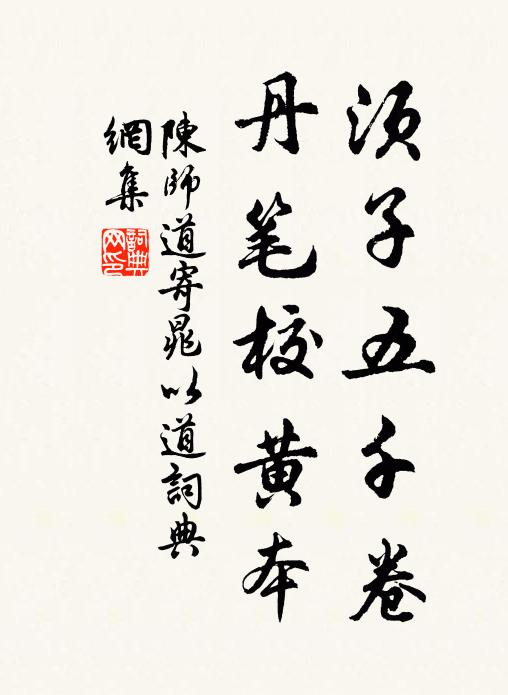 須子五千卷
丹笔校黄本
陳師道寄晁以道詞典
網集
詞典
网印